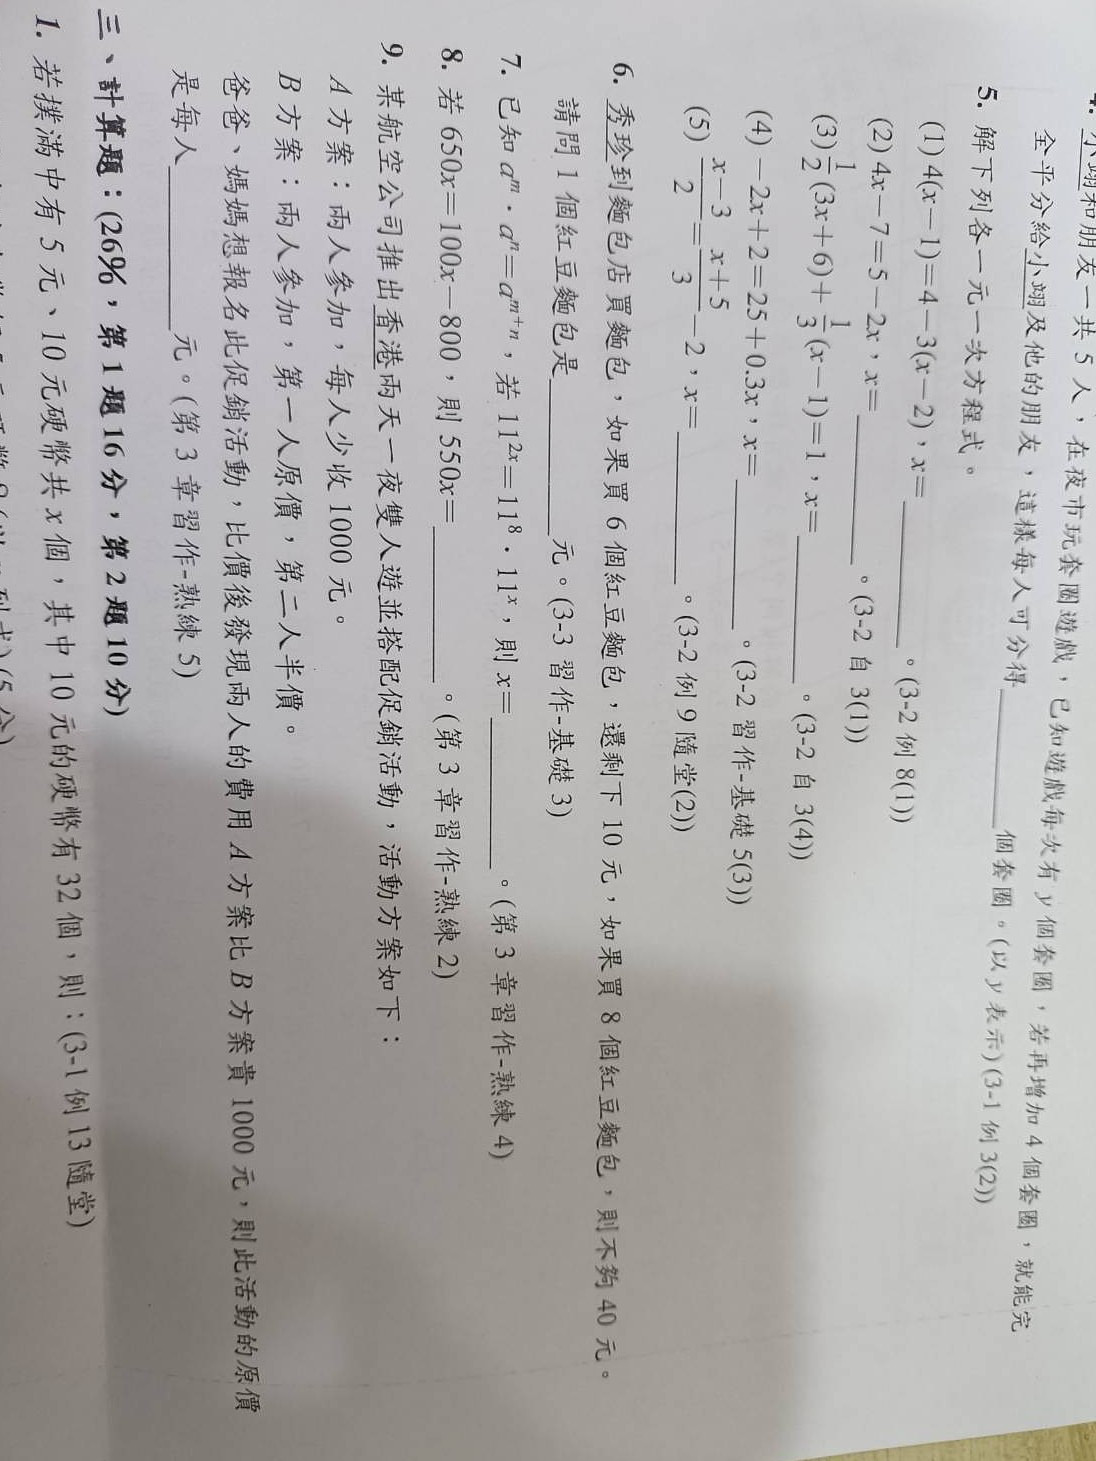 4. 小翊和朋友一共 5 人，在夜市玩套圈遊戲，已知遊戲每次有 y 個套圈，若再增加 4 個套圈，就能完
全平分給小翊及他的朋友，這樣每人可分得________個套圈。(以 y 表示)(3-1 例 3(2))
5. 解下列各一元一次方程式。
(1) 4(x－1)=4－3(x－2)，x=________。(3-2 例 8(1))
(2) 4x－7=5－2x，x=________。(3-2 自 3(1))
(3) 1/2(3x+6)+1/3(x－1)=1，x=________。(3-2 自 3(4))
(4) －2x+2=25+0.3x，x=________。(3-2 習作-基礎 5(3))
(5) (x－3)/2=(x+5)/3－2，x=________。(3-2 例 9 隨堂(2))
6. 秀珍到麵包店買麵包，如果買 6 個紅豆麵包，還剩下 10 元，如果買 8 個紅豆麵包，則不夠 40 元。
請問 1 個紅豆麵包是________元。(3-3 習作-基礎 3)
7. 已知 aᵐ．aⁿ=aᵐ⁺ⁿ，若 11²ˣ=11⁸．11ˣ，則 x=________。(第 3 章習作-熟練 4)
8. 若 650x=100x－800，則 550x=________。(第 3 章習作-熟練 2)
9. 某航空公司推出香港兩天一夜雙人遊並搭配促銷活動，活動方案如下：
A 方案：兩人參加，每人少收 1000 元。
B 方案：兩人參加，第一人原價，第二人半價。
爸爸、媽媽想報名此促銷活動，比價後發現兩人的費用 A 方案比 B 方案貴 1000 元，則此活動的原價
是每人________元。(第 3 章習作-熟練 5)
三、計算題：(26%，第 1 題 16 分，第 2 題 10 分)
1. 若撲滿中有 5 元、10 元硬幣共 x 個，其中 10 元的硬幣有 32 個，則：(3-1 例 13 隨堂)